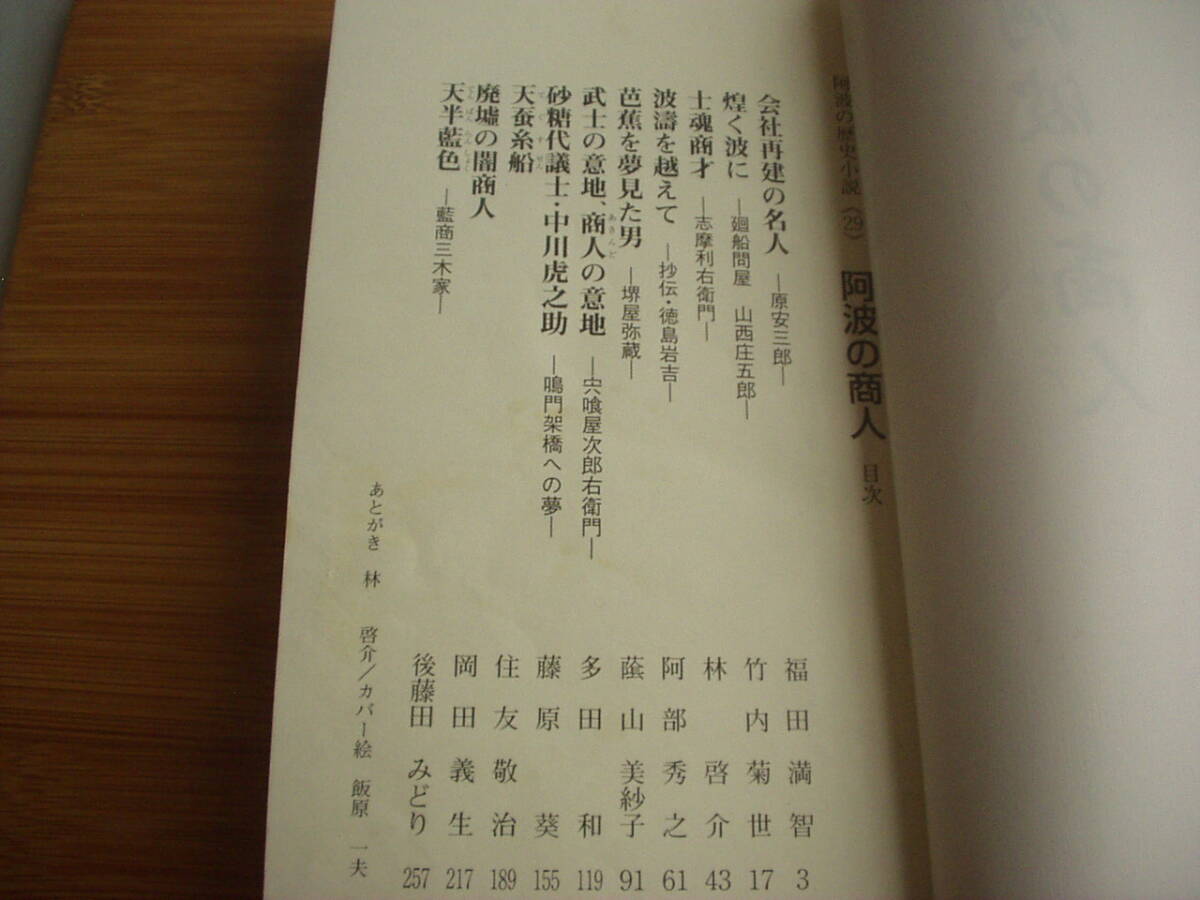 阿波の歴史小説(29) 阿波の商人 目次
会社再建の名人 ―原安三郎― 福田満智 3
煌く波に ―廻船問屋 山西庄五郎― 竹内菊世 17
士魂商才 ―志摩利右衛門― 林啓介 43
波濤を越えて ―抄伝・徳島岩吉― 阿部秀之 61
芭蕉を夢見た男 ―堺屋弥蔵― 蔭山美紗子 91
武士の意地、商人の意地 ―宍喰屋次郎右衛門― 多田和 119
あきんど
砂糖代議士・中川虎之助 ―鳴門架橋への夢― 藤原葵 155
天蚕糸船 住友敬治 189
てぐすせん
廃墟の闇商人 岡田義生 217
天半藍色 ―藍商三木家― 後藤田みどり 257
てんぱんらんしょく
あとがき 林 啓介/カバー絵 飯原 一夫